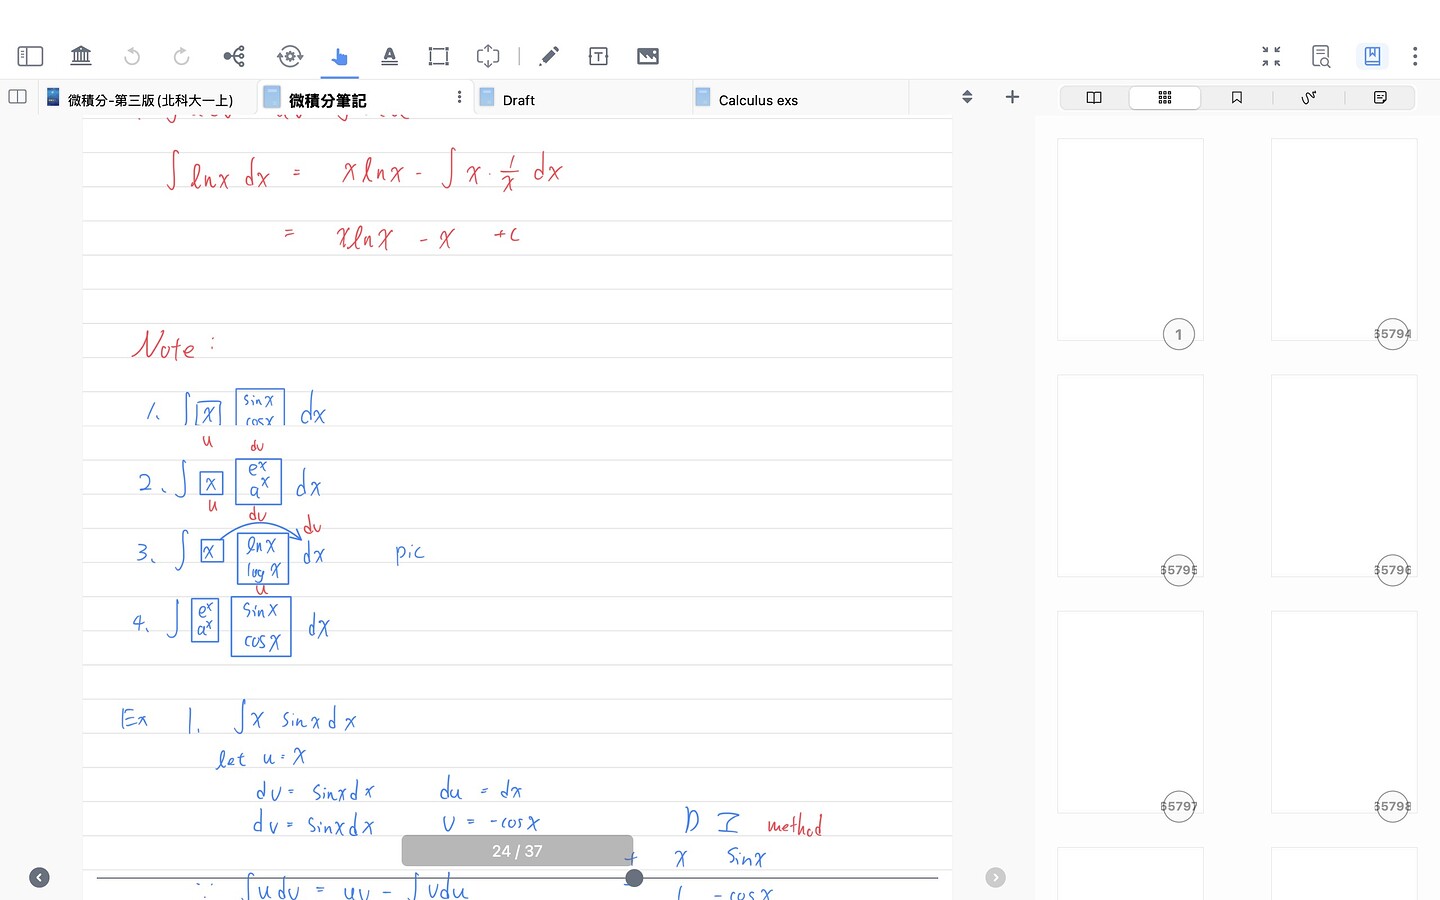 微積分-第三版 (北科大一上)
微積分筆記
Draft
Calculus exs
∫ lnx dx = xlnx - ∫ x · 1/x dx
= xlnx - x +c
Note :
1. ∫ x sinx dx
cosx
u dv
2. ∫ x e^x dx
a^x
u dv
dv
3. ∫ x lnx dx pic
log x
u
4. ∫ e^x sinx dx
a^x cosx
Ex 1. ∫x sinx dx
let u = x
dv = sinxdx du = dx
dv = sinxdx v = -cosx
D I method
+ x sinx
∵ ∫udv = uv - ∫vdu
- 1 -cosx
24 / 37
1
65794
65795
65796
65797
65798